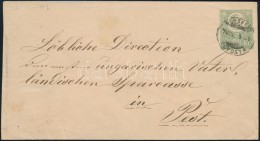 Löbliche Direction
ungarischen Vaterl.
ländischen Sparcasse
in
Pest.